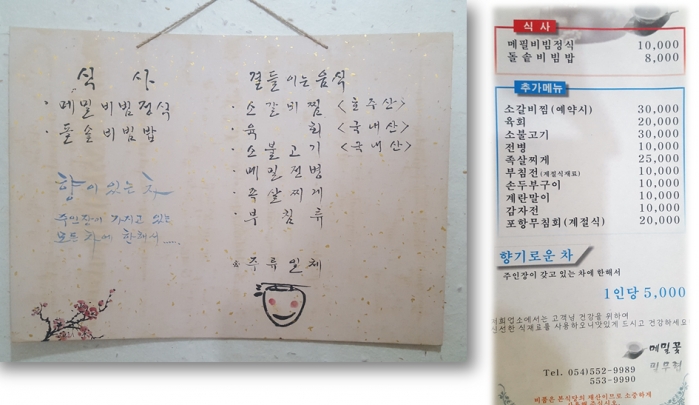 식 사
· 메밀비빔정식
· 돌솥비빔밥
향이 있는 차
주인장이 가지고 있는
모든 차에 한해서.....
곁들이는 음식
· 소갈비찜 <호주산>
· 육 회 <국내산>
· 소불고기 <국내산>
· 메밀전병
· 족살찌게
· 부침류
주류일체
식 사
메밀비빔정식 10,000
돌솥비빔밥 8,000
추가메뉴
소갈비찜(예약시) 30,000
육회 20,000
소불고기 30,000
전병 10,000
족살찌게 25,000
부침전(계절식재료) 10,000
손두부구이 10,000
계란말이 10,000
감자전 10,000
포항무침회(계절식) 20,000
향기로운 차
주인장이 갖고 있는 차에 한해서
1인당 5,000
저희업소에서는 고객님 건강을 위하여
신선한 식재료를 사용하오니맛있게 드시고 건강하세요
메밀꽃
필무렵
Tel. 054)552-9989
553-9990
비품은 본식당의 재산이므로 소중하게